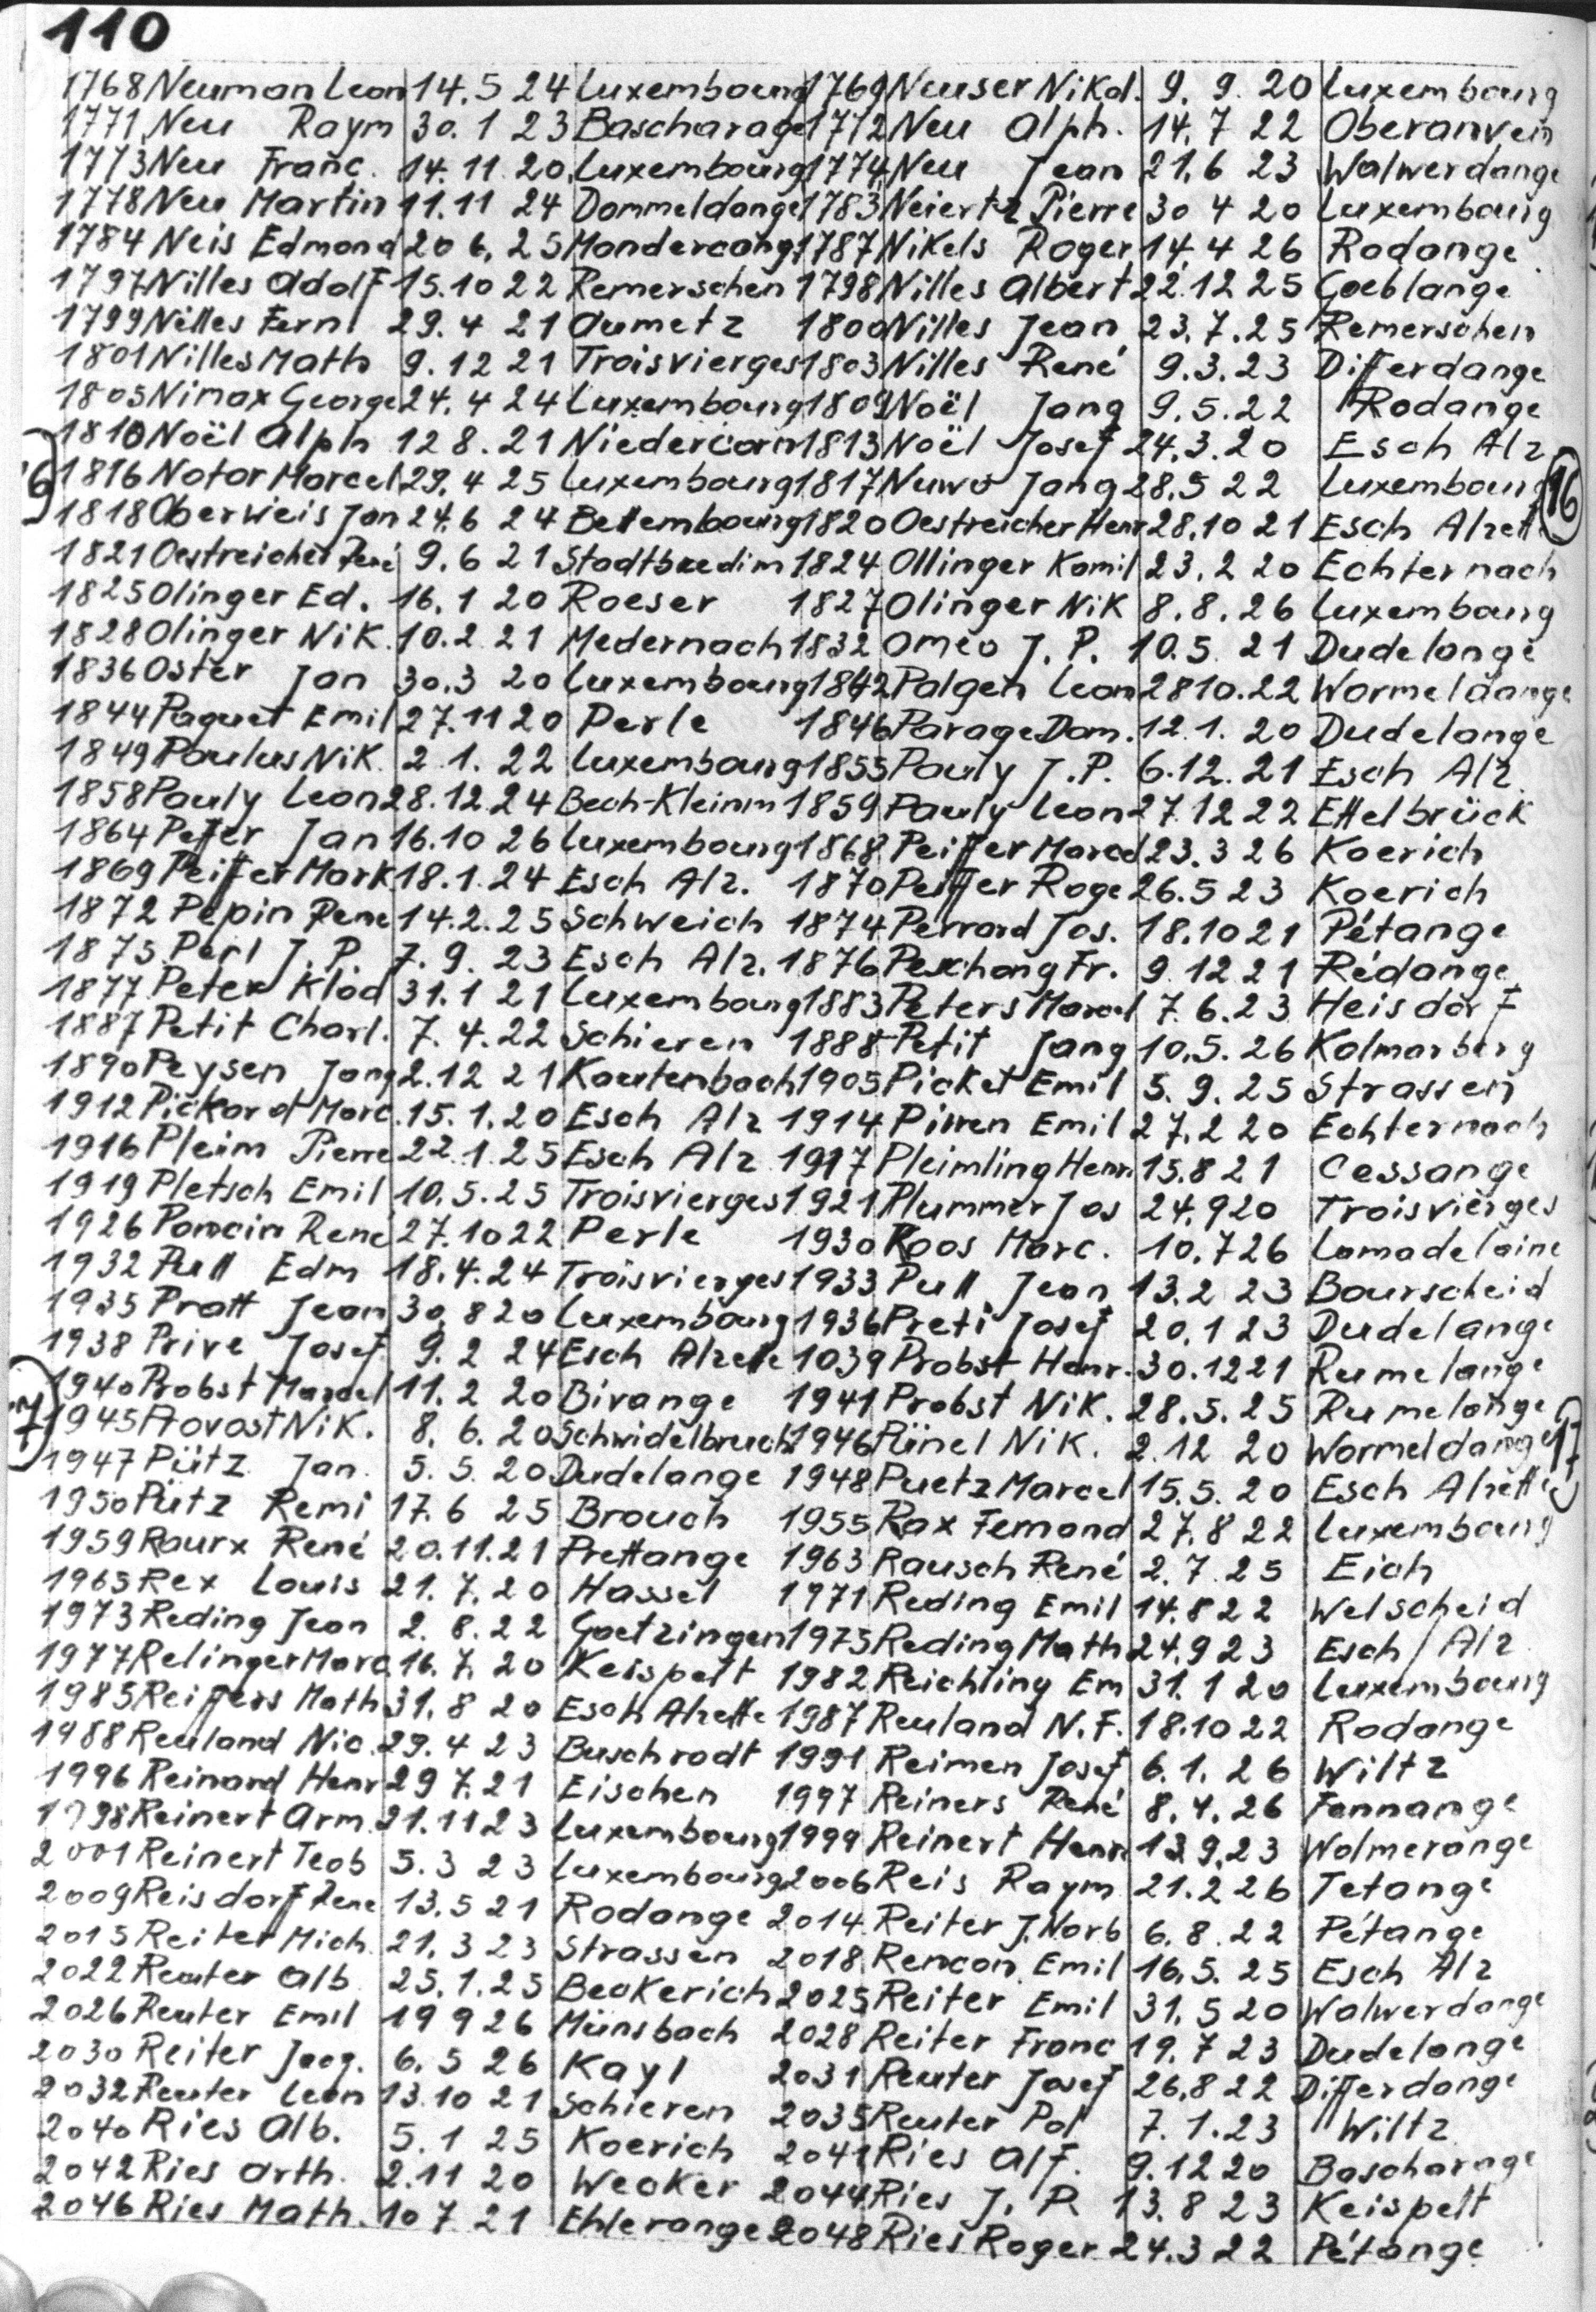 110
1768 Neuman Leon 14.5 24 Luxembourg 1769 Neuser Nikol. 9. 9. 20 Luxembourg
1771 Neu Raym 30. 1 23 Bascharage 1772 Neu Alph. 14. 7 22 Oberanven
1773 Neu Franc. 14. 11 20 Luxembourg 1774 Neu Jean 21. 6 23 Walwerdange
1778 Neu Martin 11.11 24 Dommeldange 1783 Neiertz Pierre 30 4 20 Luxembourg
1784 Neis Edmond 20 6. 25 Mondercange 1787 Nikels Roger 14. 4 26 Rodange
1797 Nilles Adolf 15.10 22 Remerschen 1798 Nilles Albert 22.12 25 Goeblange
1799 Nilles Fern 29. 4 21 Aumetz 1800 Nilles Jean 23. 7. 25 Remerschen
1801 Nilles Math 9. 12 21 Troisvierges 1803 Nilles René 9. 3. 23 Differdange
1805 Nimax George 24. 4 24 Luxembourg 1809 Noël Jang 9. 5. 22 Rodange
1810 Noël Alph 12 8. 21 Niedercorn 1813 Noël Josef 24. 3. 20 Esch Alz
1816 Notor Marcel 29. 4 25 Luxembourg 1817 Nuwo Jang 28.5 22 Luxembourg 16
1818 Oberweis Jan 24. 6 24 Bettembourg 1820 Oestreicher Henr 28.10 21 Esch Alzett
1821 Oestreicher René 9. 6 21 Stadtbredim 1824 Ollinger Kamil 23. 2 20 Echternach
1825 Olinger Ed. 16. 1 20 Roeser 1827 Olinger NiK 8. 8. 26 Luxembourg
1828 Olinger NiK. 10. 2. 21 Medernach 1832 Omeo J. P. 10. 5 21 Dudelange
1836 Oster Jan 30. 3 20 Luxembourg 1842 Palgen Leon 28 10. 22 Wormeldange
1844 Paquet Emil 27. 11 20 Perle 1846 Parage Dom. 12. 1. 20 Dudelange
1849 Paulus NiK. 2. 1. 22 Luxembourg 1855 Pauly J.P. 6. 12. 21 Esch Alz.
1858 Pauly Leon 28. 12. 24 Bech-Kleinm 1859 Pauly Leon 27 12 22 Ettelbrück
1864 Peffer Jan 16. 10 26 Luxembourg 1868 Peiffer Marcel 23. 3 26 Koerich
1869 Peiffer Mark 18. 1. 24 Esch Alz. 1870 Peiffer Roge 26. 5 23 Koerich
1872 Pepin Rene 14. 2. 25 Schweich 1874 Perrard Jos. 18. 10 21 Pétange
1875 Perl J. P 7. 9. 23 Esch Alz. 1876 Peschang Fr. 9. 12 21 Rédange
1877 Peter Klod 31. 1 21 Luxembourg 1883 Peters Marcel 7. 6. 23 Heisdorf
1887 Petit Charl. 7. 4. 22 Schieren 1888 Petit Jang 10. 5. 26 Kolmarberg
1890 Peysen Jang 2. 12 21 Kautenbach 1905 Picket Emil 5. 9. 25 Strassen
1912 Pickard Marc. 15. 1. 20 Esch Alz 1914 Pirren Emil 27. 2 20 Echternach
1916 Pleim Pierre 22. 1. 25 Esch Alz 1917 Pleimling Henri 15. 8 21 Cessange
1919 Pletsch Emil 10. 5. 25 Troisvierges 1921 Plummer Jos 24. 9 20 Troisvierges
1926 Poncin René 27. 10 22 Perle 1930 Roos Marc. 10. 7 26 Lamadelaine
1932 Pull Edm 18. 4. 24 Troisvierges 1933 Pull Jean 13. 2 23 Bourscheid
1935 Pratt Jean 30. 8 20 Luxembourg 1936 Preti Josef 20. 1 23 Dudelange
1938 Prive Josef 9. 2 24 Esch Alzette 1039 Probst Henr. 30. 12 21 Rumelange
1940 Probst Marcel 11. 2 20 Bivange 1941 Probst NiK. 28. 5. 25 Rumelange
1945 Provost NiK. 8. 6. 20 Schwidelbruch 1946 Pünel NiK. 2. 12 20 Wormeldange 17
1947 Pütz Jan. 5. 5. 20 Dudelange 1948 Puetz Marcel 15. 5. 20 Esch Alzette
1950 Pütz Remi 17. 6 25 Brouch 1955 Rax Fernand 27. 8 22 Luxembourg
1959 Raurx René 20. 11. 21 Prettange 1963 Rausch René 2. 7. 25 Eich
1965 Rex Louis 21. 7. 20 Hassel 1971 Reding Emil 14. 8 22 Welscheid
1973 Reding Jean 2. 8. 22 Goetzingen 1975 Reding Math 24. 9 23 Esch/Alz
1977 Relinger Marc 16. 7. 20 Keispelt 1982 Reichling Em 31. 1 20 Luxembourg
1985 Reiffers Math 31. 8 20 Esch Alzette 1987 Reuland N. F. 18. 10 22 Rodange
1988 Reuland Nic. 29. 4 23 Buschrodt 1991 Reimen Josef 6. 1. 26 Wiltz
1996 Reinard Henr 29 7. 21 Eischen 1997 Reiners René 8. 4. 26 Fennange
1998 Reinert Arm. 21. 11 23 Luxembourg 1999 Reinert Henri 13. 9. 23 Wolmerange
2001 Reinert Teob 5. 3 23 Luxembourg 2006 Reis Raym 21. 2 26 Tetange
2009 Reisdorf Rene 13. 5 21 Rodange 2014 Reiter J. Norb 6. 8. 22 Pétange
2015 Reiter Mich. 21. 3 23 Strassen 2018 Rencon Emil 16. 5. 25 Esch Alz
2022 Reuter Alb 25. 1. 25 Beckerich 2025 Reiter Emil 31. 5 20 Walwerdange
2026 Reuter Emil 19 9 26 Münsbach 2028 Reiter Franc 19. 7 23 Dudelange
2030 Reiter Jacq. 6. 5 26 Kayl 2031 Reuter Josef 26. 8 22 Differdange
2032 Reuter Leon 13. 10 21 Schieren 2035 Reuter Pol 7. 1. 23 Wiltz
2040 Ries Alb. 5. 1 25 Koerich 2041 Ries Alf. 9. 12 20 Bascharage
2042 Ries Arth. 2. 11 20 Wecker 2044 Ries J. P. 13. 8 23 Keispelt
2046 Ries Math. 10 7 21 Ehlerange 2048 Ries Roger 24. 3 22 Pétange